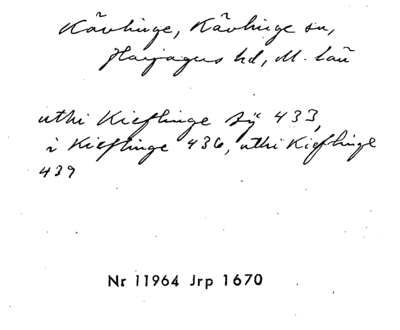 Kävlinge, Kävlinge sn,
Harjagers hd, M. län
uthi Kieflinge Bÿ 433,
i Kieflinge 436, uthi Kieflinge
439
Nr 11964 Jrp 1670